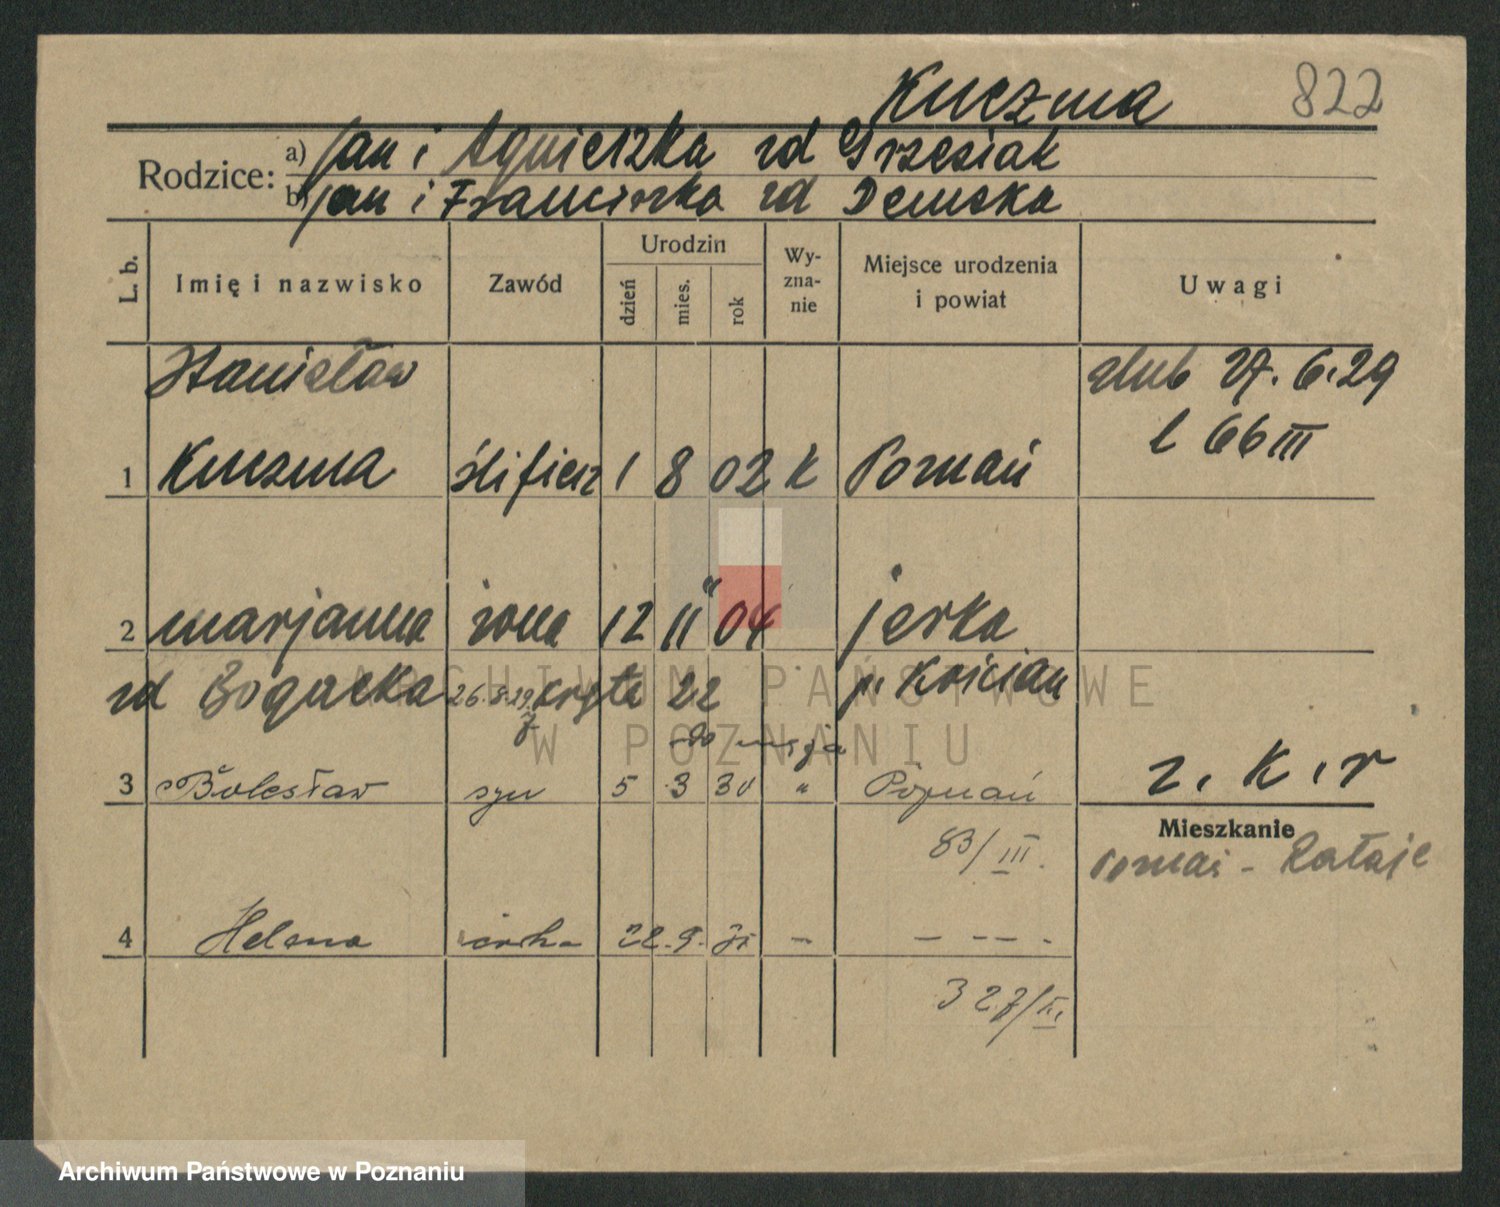 Kuczma 822
Rodzice: a) Jan i Agnieszka zd Grzesiak
b) Jan i Franciszka zd Demska
L. b. Imię i nazwisko Zawód Urodzin dzień mies. rok Wy-zna-nie Miejsce urodzenia i powiat Uwagi
Stanisław ślub 27.6.29
l 66 III
1 Kuczma ślifierz 1 8 02 k Poznań
2 marjanna żona 12 11 04 " jerka
zd Bogacka 26.8.29 Kręta 22 p. Kościan
ARCHIWUM PAŃSTWOWE
W POZNANIU
do
3 Bolesław syn 5 3 30 " Poznań z. k. r
Mieszkanie
83/III. Poznań - Rataje
4 Helena córka 22. 9. 31 - - - - -
327/III.
Archiwum Państwowe w Poznaniu